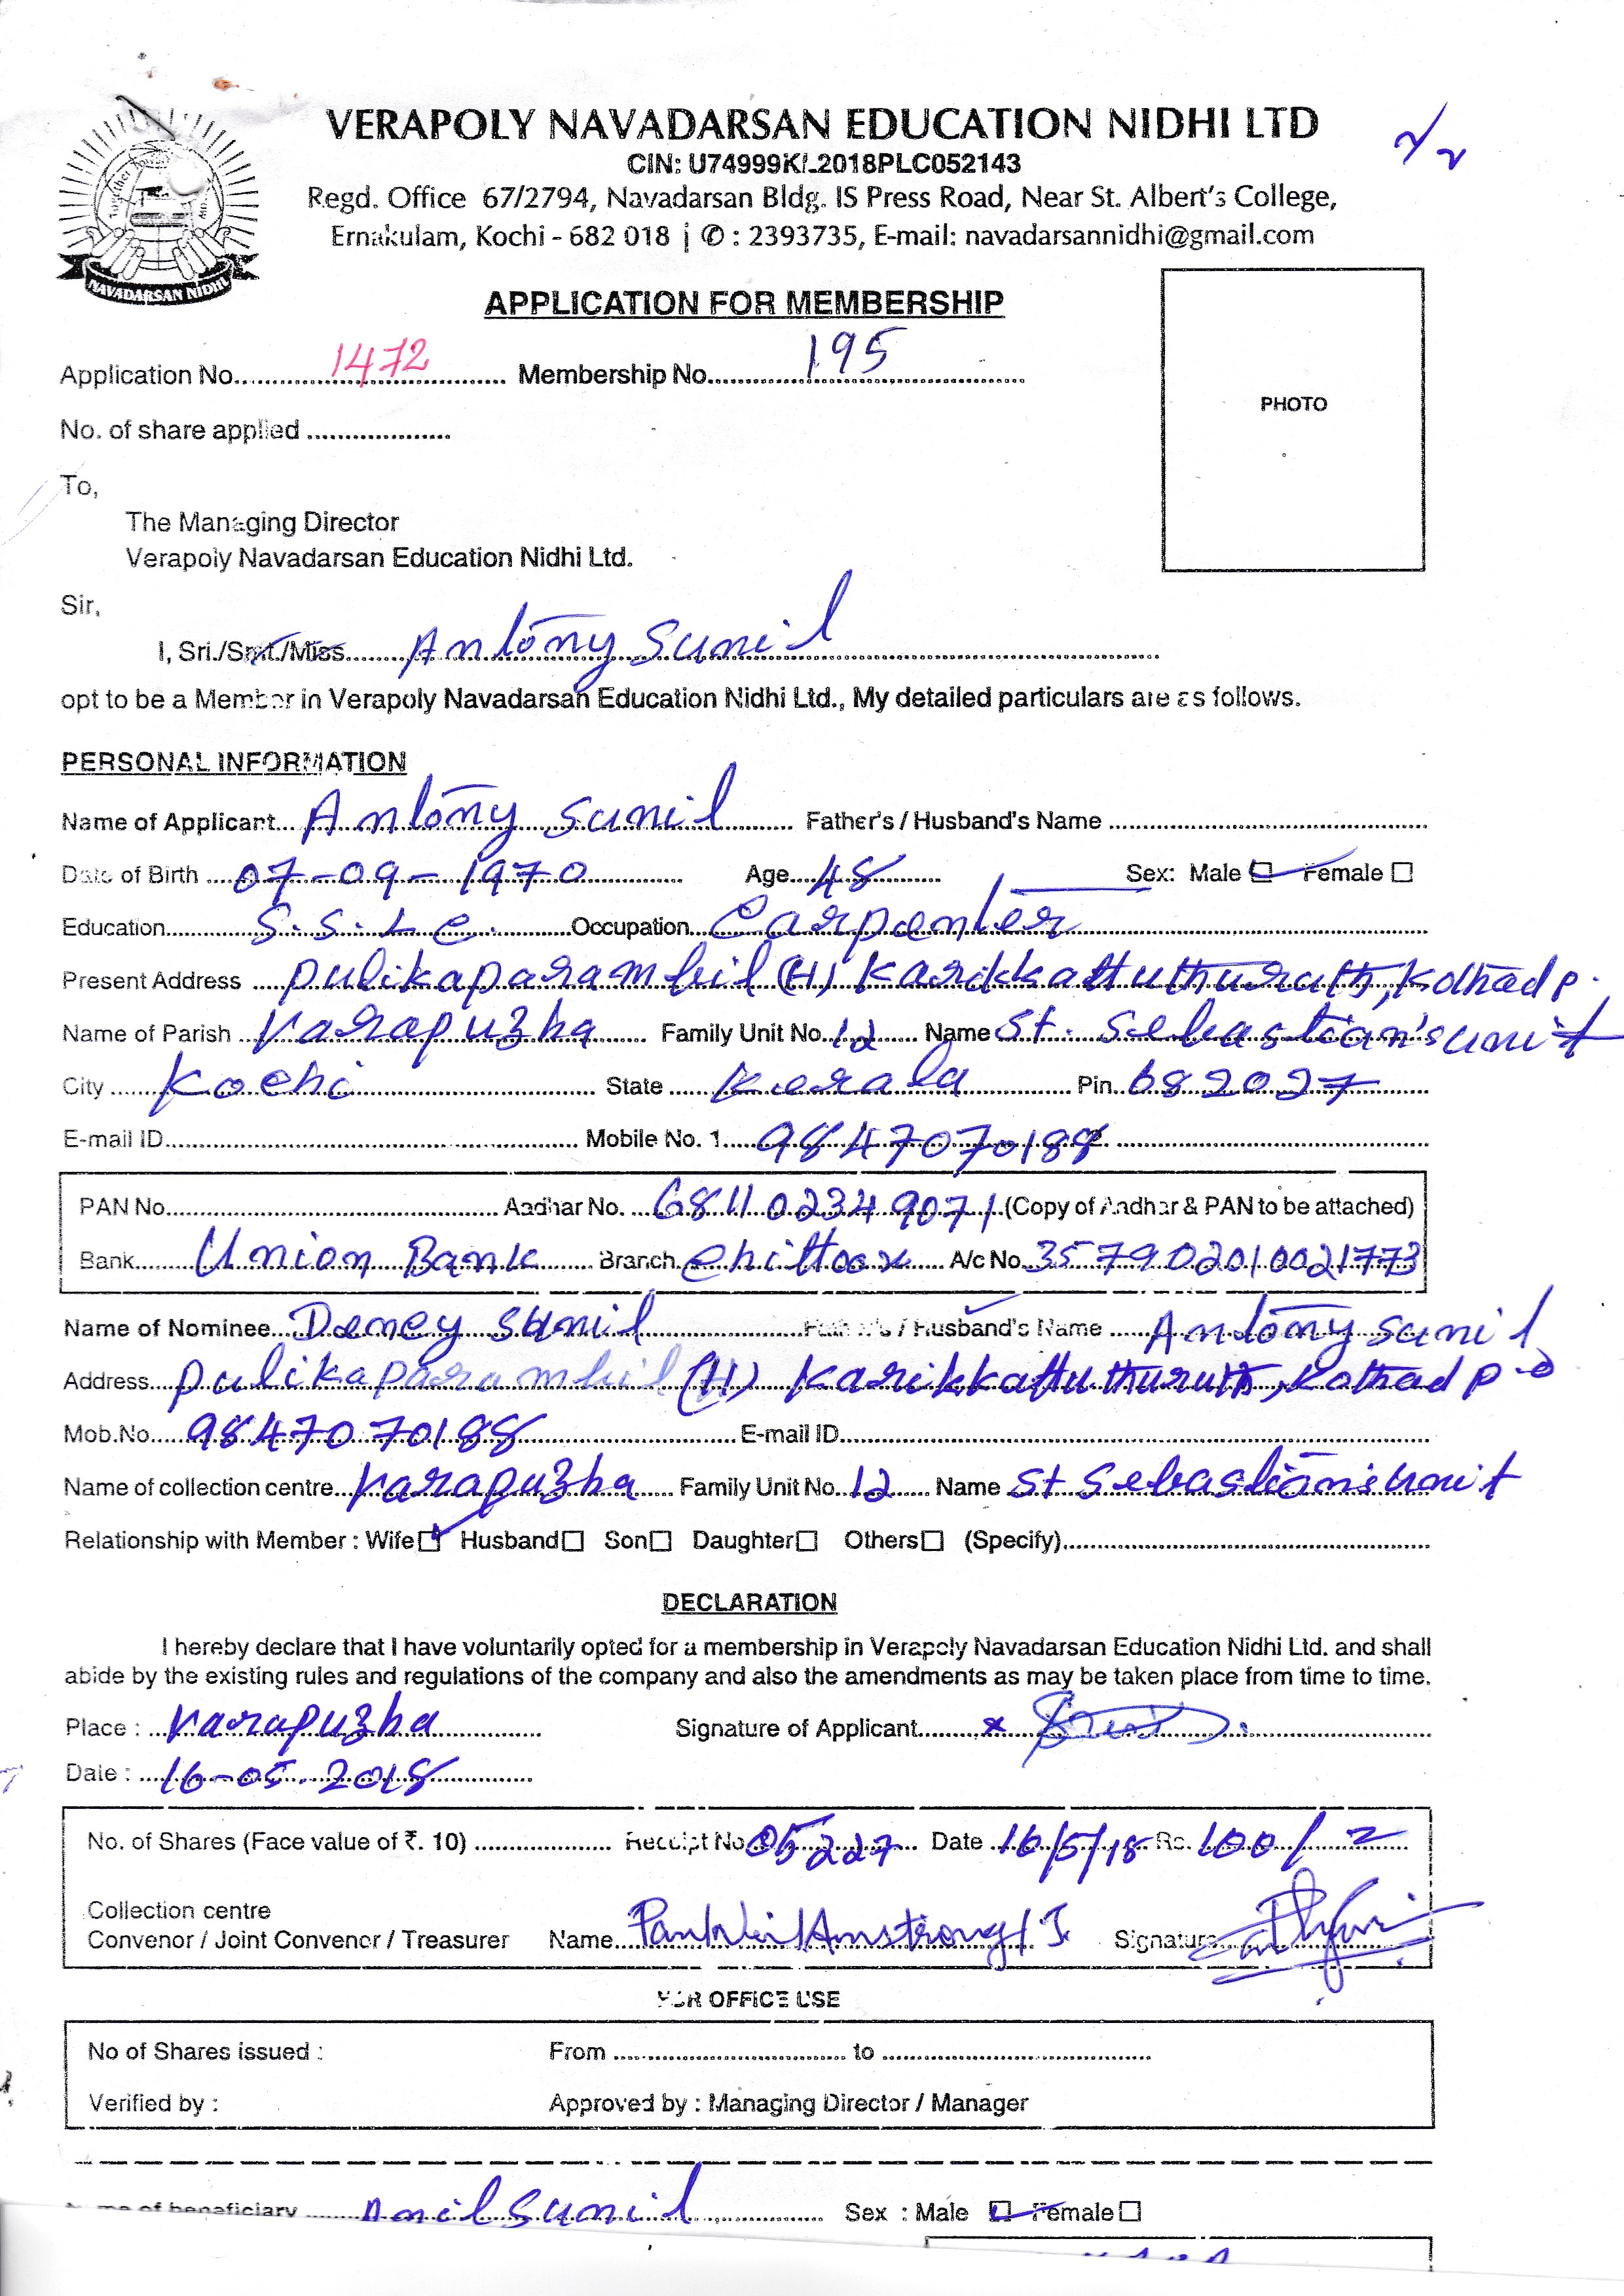 VERAPOLY NAVADARSAN EDUCATION NIDHI LTD
CIN: U74999KL2018PLC052143
Regd. Office 67/2794, Navadarsan Bldg. IS Press Road, Near St. Albert's College,
Ernakulam, Kochi - 682 018 | ✆ : 2393735, E-mail: navadarsannidhi@gmail.com
NAVADARSAN NIDHI
APPLICATION FOR MEMBERSHIP
Application No. 1472 Membership No. 195
No. of share applied
PHOTO
To,
The Managing Director
Verapoly Navadarsan Education Nidhi Ltd.
Sir,
I, Sri./Smt./Miss Antony Sunil
opt to be a Member in Verapoly Navadarsan Education Nidhi Ltd., My detailed particulars are as follows.
PERSONAL INFORMATION
Name of Applicant Antony Sunil Father's / Husband's Name
Date of Birth 07-09-1970 Age 48 Sex: Male ☑ Female ☐
Education S.S.L.C. Occupation Carpenter
Present Address Pulikaparambil (H) Karikkattuthuruth, Kothad P.
Name of Parish Varapuzha Family Unit No. 12 Name St. Sebastian's unit
City Kochi State Kerala Pin 682027
E-mail ID Mobile No. 1 9847070188 2.
PAN No. Aadhar No. 681102349071 (Copy of Aadhar & PAN to be attached)
Bank Union Bank Branch Chittoor A/c No. 357902010021773
Name of Nominee Dency Sunil Father's / Husband's Name Antony Sunil
Address Pulikaparambil (H) Karikkattuthuruth, Kothad P.O
Mob.No. 9847070188 E-mail ID
Name of collection centre Varapuzha Family Unit No. 12 Name St Sebastian's Unit
Relationship with Member : Wife ☑ Husband ☐ Son ☐ Daughter ☐ Others ☐ (Specify)
DECLARATION
I hereby declare that I have voluntarily opted for a membership in Verapoly Navadarsan Education Nidhi Ltd. and shall
abide by the existing rules and regulations of the company and also the amendments as may be taken place from time to time.
Place : Varapuzha Signature of Applicant x
Date : 16-05-2018
No. of Shares (Face value of ₹. 10) Receipt No. 05227 Date 16/5/18 Rs. 100/
Collection centre
Convenor / Joint Convenor / Treasurer Name Armstrong J. Signature
FOR OFFICE USE
No of Shares issued : From to
Verified by : Approved by : Managing Director / Manager
Name of beneficiary Amil Sunil Sex : Male ☑ Female ☐